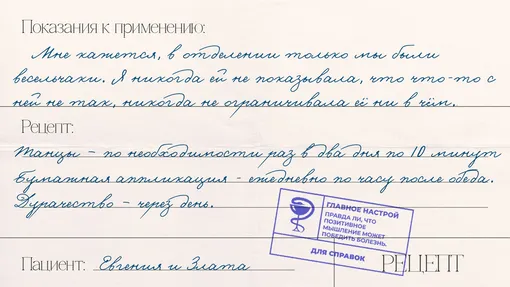 Показания к применению:
Мне кажется, в отделении только мы были
весельчаки. Я никогда ей не показывала, что что-то с
ней не так, никогда не ограничивала её ни в чём.
Рецепт:
Танцы – по необходимости раз в два дня по 10 минут
Бумажная аппликация - ежедневно по часу после обеда.
Дурачество – через день.
ГЛАВНОЕ НАСТРОЙ
ПРАВДА ЛИ, ЧТО
ПОЗИТИВНОЕ
МЫШЛЕНИЕ МОЖЕТ
ПОБЕДИТЬ БОЛЕЗНЬ.
ДЛЯ СПРАВОК
Пациент: Евгения и Злата
РЕЦЕПТ